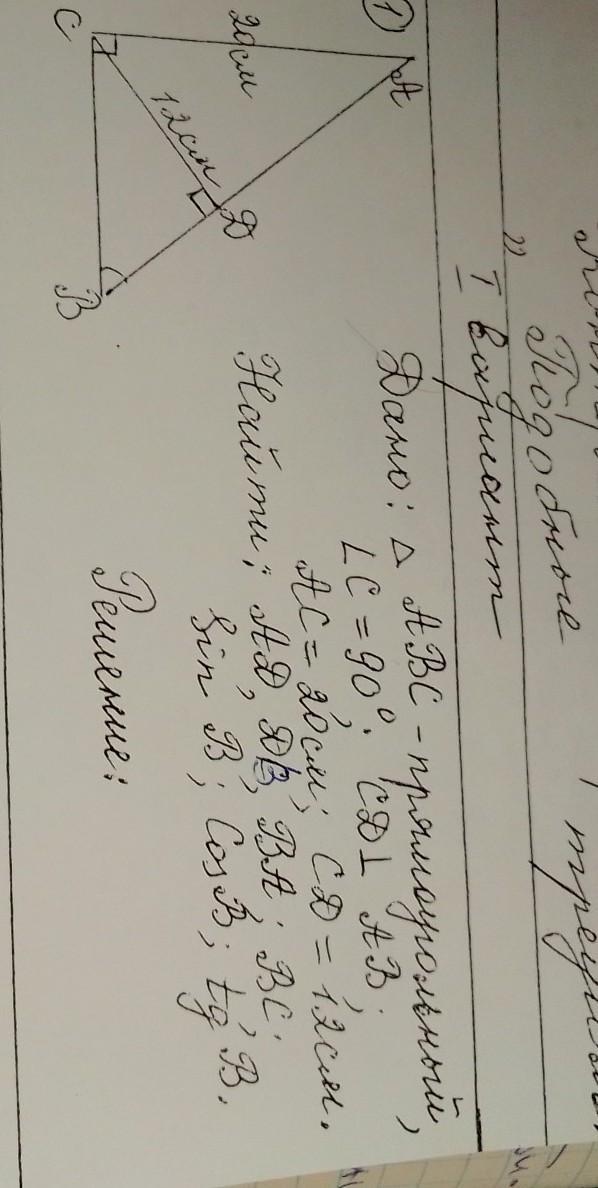 "Подобные
I вариант
1) Дано: △ ABC - прямоугольный,
∠C = 90°, CD⊥ AB.
AC = 20см; CD = 12см.
Найти: AD, DB, BA. BC.
Sin B; CosB; tg B.
Решение:
A
20см
C
12см
D
B